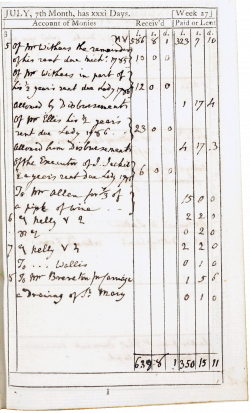 JULY, 7th Month, has xxxi Days. Week 27
Account of Monies Receiv'd Paid or Lent
l. s. d. l. s. d.
586 8 1 323 7 10
5 Of Mr Withers the remainder
of his rent due Mich: 1755 10 0 0
Of Mr Withers in part of
his ½ year's rent due Lady 12 0 0
allowed by Disbursements 1 17 4
Of Mr Ellis his ½ year's
rent due Lady 1756 23 0 0
allowed him Disbursements 4 17 3
Of the Executor of J.
½ a year's rent due Lady 6 0 0
To Mr Allen for ⅓ of
a pipe of wine 15 0 0
6 Nelly 2 2 0
0 2 0
7 Nelly 2 2 0
To Wallis 0 1 0
8 To Mr Brereton for carriage 1 5 6
a Drawing of St Mary 0 1 0
350 15 11